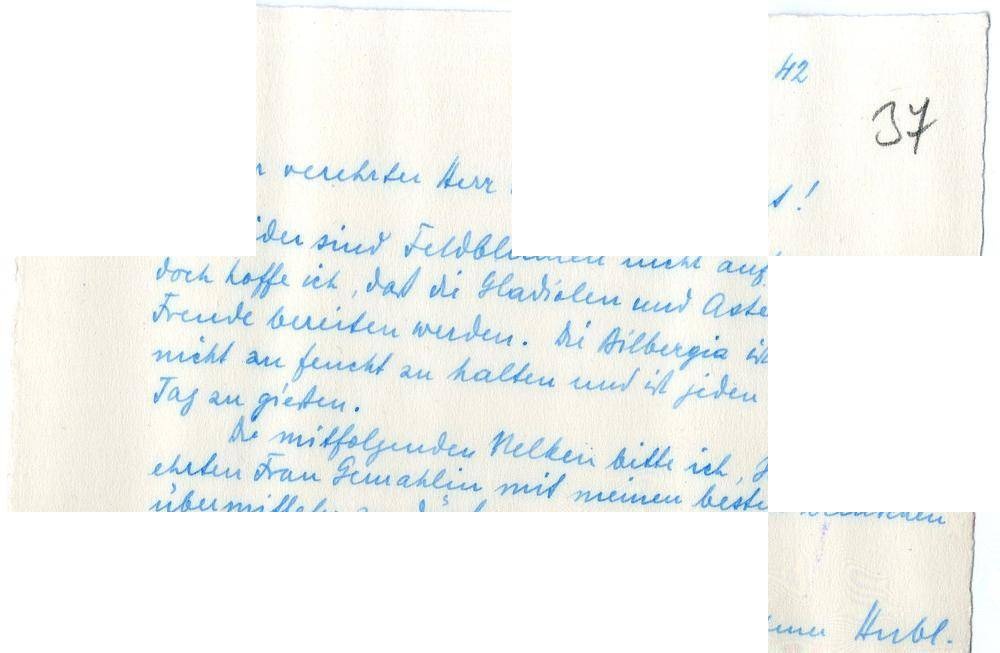 42
37
verehrter Herr
sind Feldblumen nicht
doch hoffe ich, daß die Gladiolen und
Freude bereiten werden. Die Bilbergia ist
nicht zu feucht zu halten und ist jeden
Tag zu gießen.
Die mitfolgenden Nelken bitte ich,
ehrten Frau Gemahlin mit meinen
Hubl.